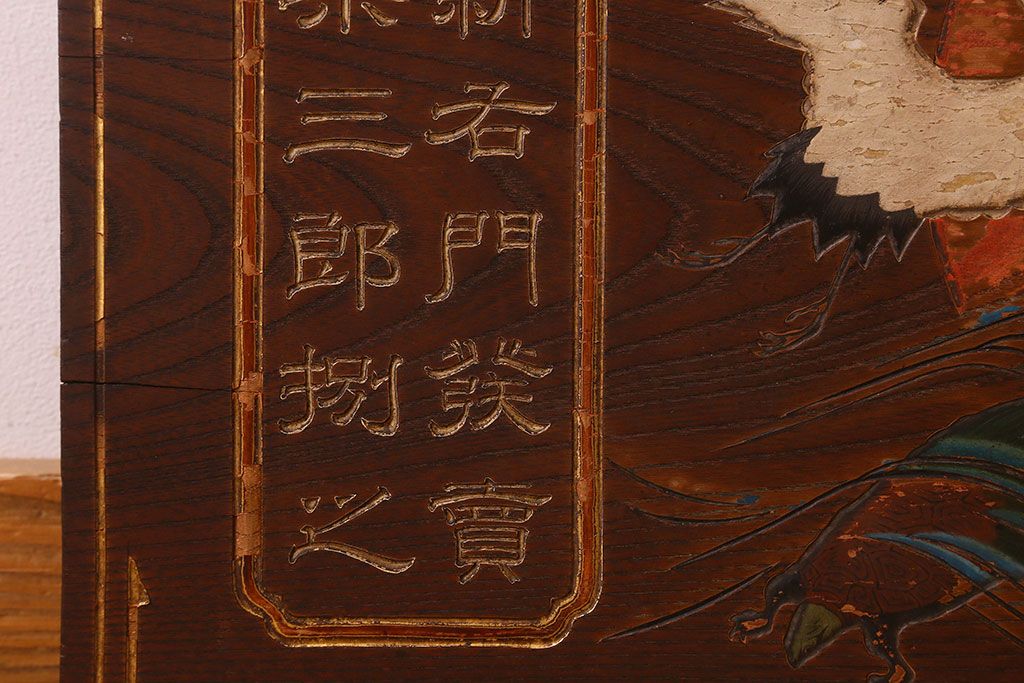 右門發賣
三郎捌之